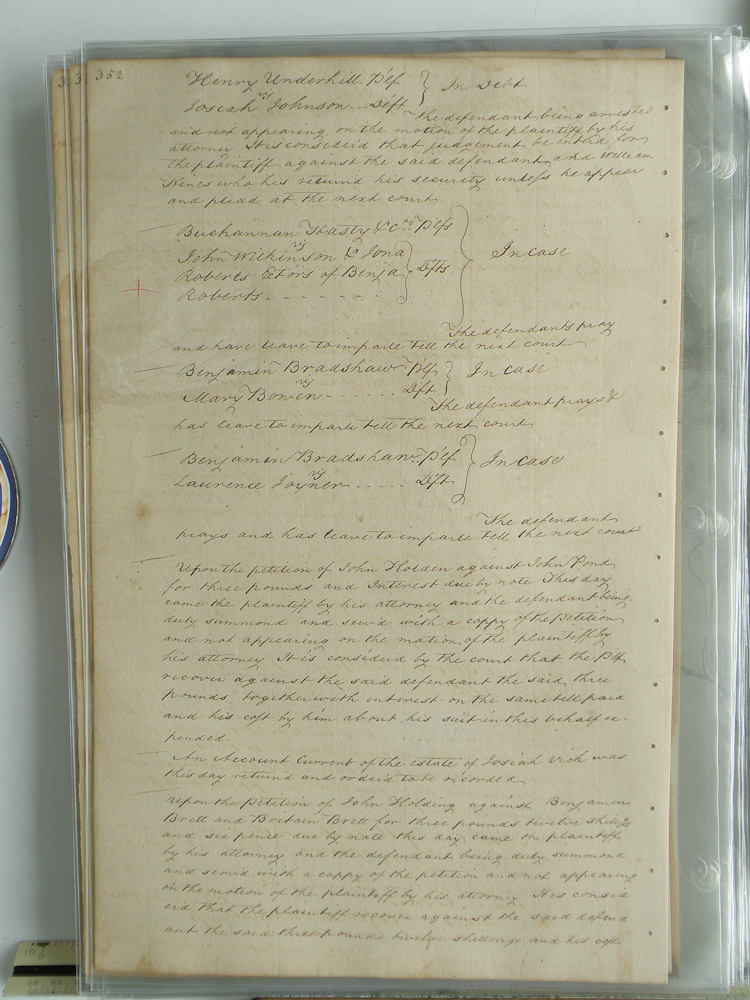 352
Henry Underhill. Plf } In Debt
vs
Josiah Johnson... Deft
The defendant being arrested
and not appearing on the motion of the plaintiff by his
attorney It is considerd that judgement be enterd for
the plaintiff against the said defendant and William
Hines who his returnd his security unless he appear
and plead at the next court
Buchannan Hasty & Co Plfs
vs
John Wilkinson & Jona
Roberts Exors of Benja } Defts } In case
Roberts - - - - - - -
The defendants pray
and have leave to imparle till the next court
Benjamin Bradshaw Plf } In case
vs
Mary Bowen - - - - - - Deft
The defendant prays &
has leave to imparle till the next court
Benjamin Bradshaw. Plf } In Case
vs
Laurence Joyner - - - - - Deft
The defendant
prays and has leave to imparle till the next court
Upon the petition of John Holden against John Pond
for three pounds and Interest due by note This day
came the plaintiff by his attorney and the defendant being
duly summond and servd with a coppy of the Petition
and not appearing on the motion of the plaintiff by
his attorney It is considerd by the court that the Plf
recover against the said defendant the said three
pounds together with interest on the same till paid
and his cost by him about his suit in this behalf ex-
pended.
An Account Current of the estate of Josiah Vick was
this day returnd and orderd to be recorded
Upon the Petition of John Holding against Benjamin
Brett and Britain Brett for three pounds twelve shillgs
and six pence due by note this day came the plaintiff
by his attorney and the defendant being duly summond
and servd with a coppy of the petition and not appearing
on the motion of the plaintiff by his attorney It is consid
erd that the plaintiff recover against the said defend
ant the said three pounds twelve shillings and his cost